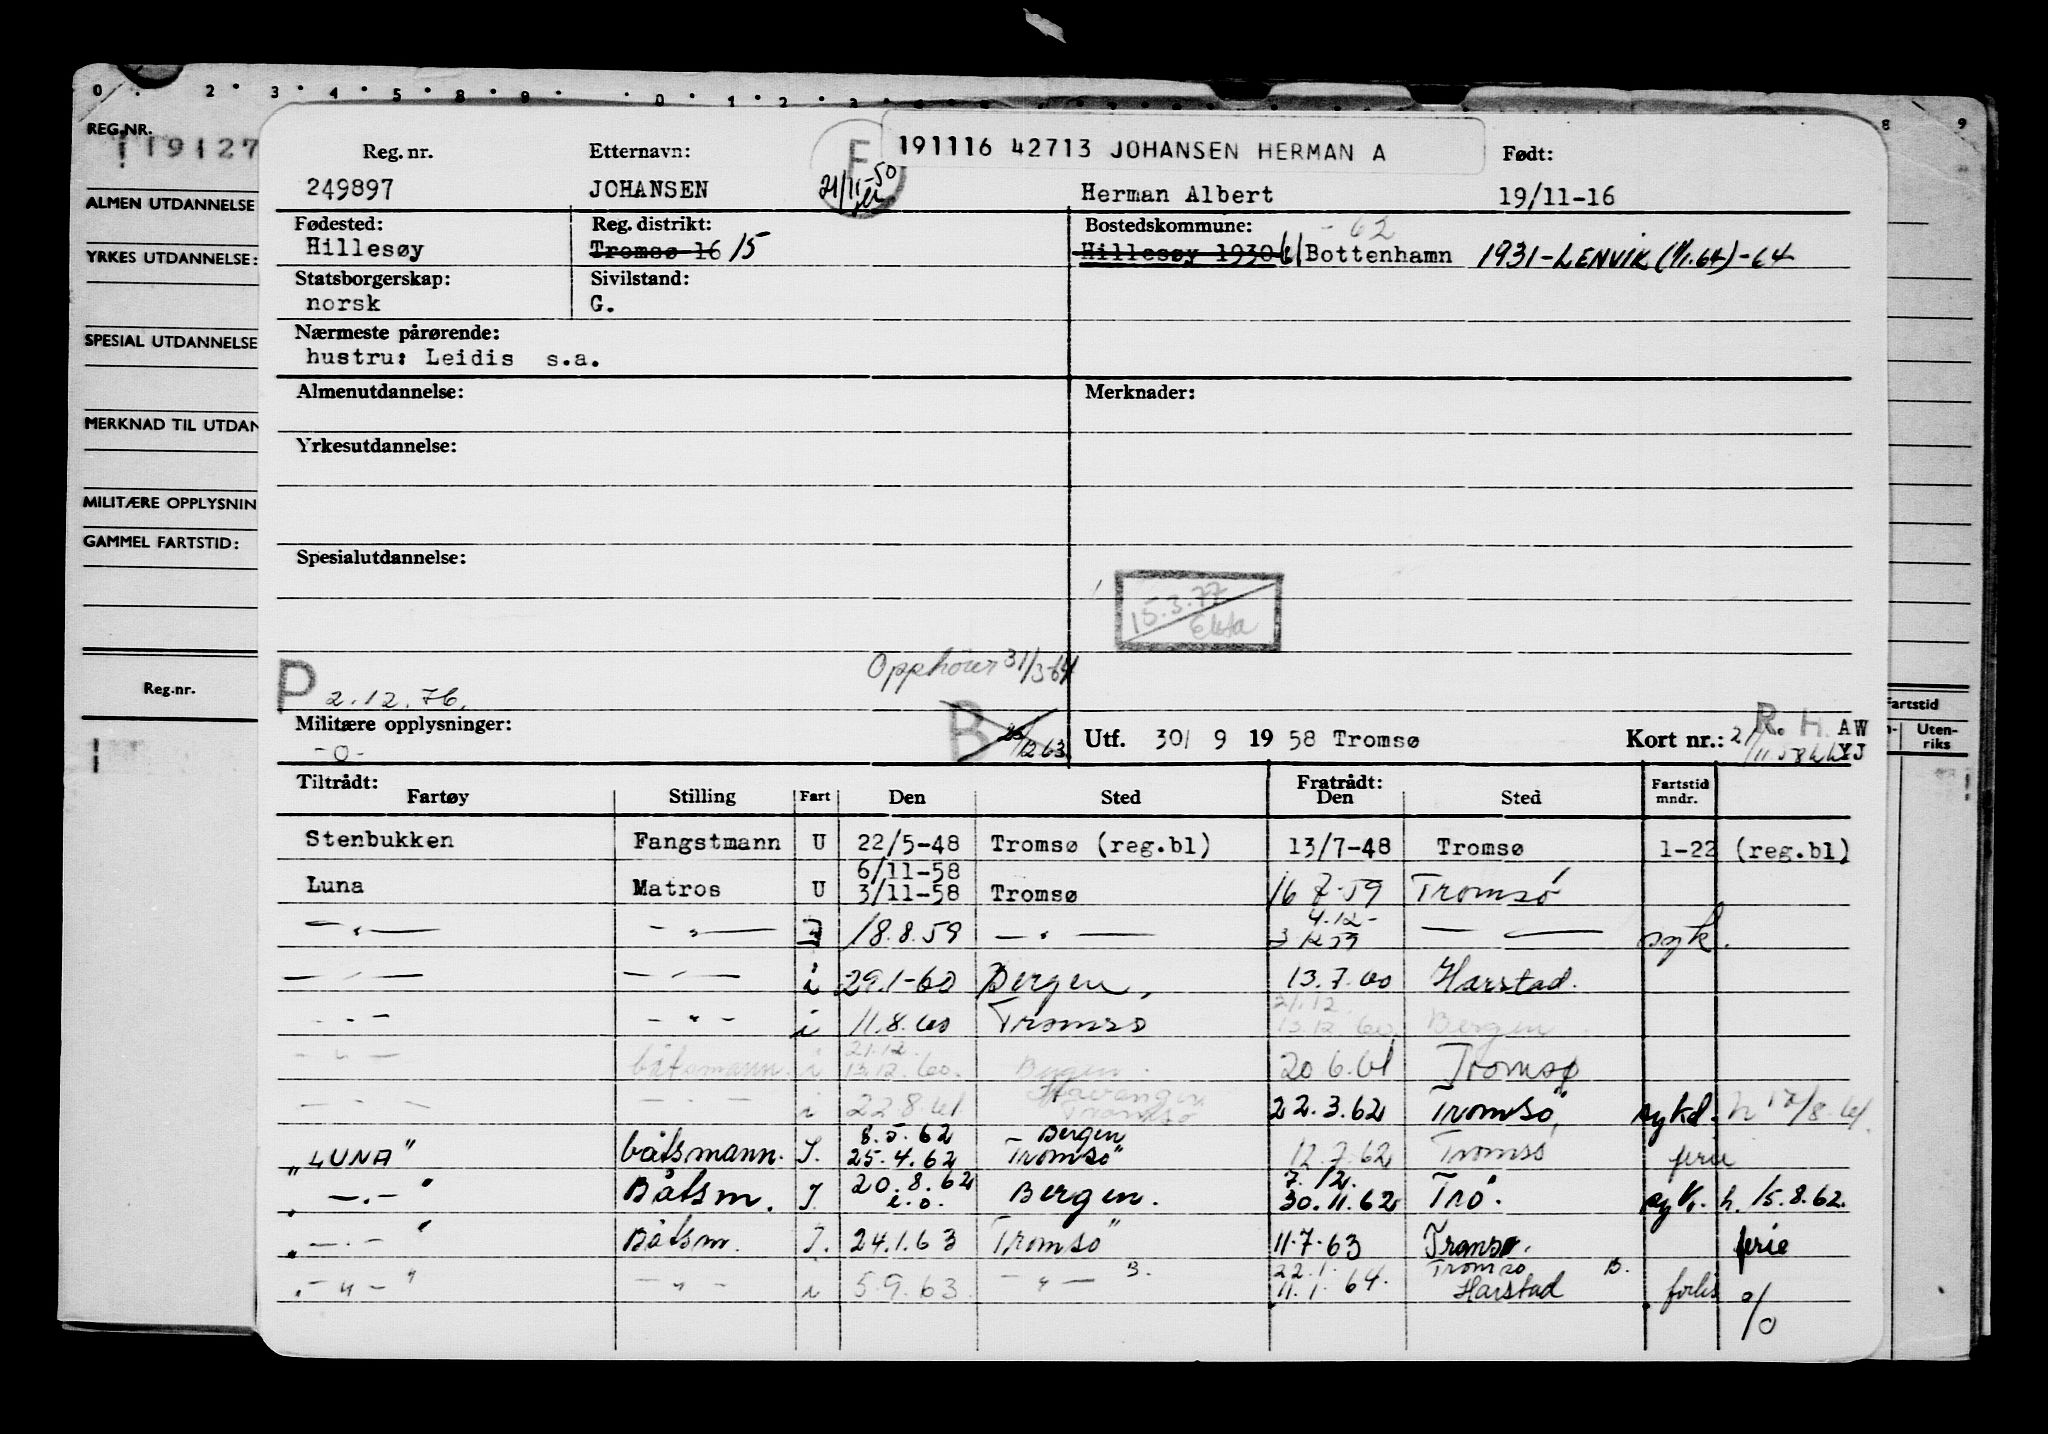 0 2 3 4 5 8 9 0 1 2 8 9
REG.NR.
19127
ALMEN UTDANNELSE
YRKES UTDANNELSE:
SPESIAL UTDANNELSE
MERKNAD TIL UTDAN
MILITÆRE OPPLYSNIN
GAMMEL FARTSTID:
Reg.nr.
Fartstid
Uten-
riks
191116 42713 JOHANSEN HERMAN A
Reg. nr. Etternavn: F Født:
249897 JOHANSEN 21/11-50 Herman Albert 19/11-16
Fødested: Reg. distrikt: Bostedskommune: -62
Hillesøy Tromsø 16 15 Hillesøy 1930 61 Bottenhamn 1931-LENVIK (1/1.64)-64
Statsborgerskap: Sivilstand:
norsk G.
Nærmeste pårørende:
hustru: Leidis s.a.
Almenutdannelse: Merknader:
Yrkesutdannelse:
Spesialutdannelse:
15.3.77
Opphører 31/3-64
P 2.12.76.
Militære opplysninger: B /12 63 Utf. 30/ 9 19 58 Tromsø Kort nr.: 2/11.58 R. H. AW
-0- YJ
Tiltrådt: Fratrådt:
Fartøy Stilling Fart Den Sted Den Sted Fartstid mndr.
Stenbukken Fangstmann U 22/5-48 Tromsø (reg.bl) 13/7-48 Tromsø 1-22 (reg.bl)
6/11-58
Luna Matros U 3/11-58 Tromsø 16 7-59 Tromsø
4.12-
— " — — " — 18.8.59 — " — 3 12 59 — " — syk.
— " — — " — i 29.1-60 Bergen, 13.7.60 Harstad.
21.12.
- " - - " - i 11.8.60 Tromsø 13.12.60 Bergen.
21.12.
- " - båtsmann. i 13.12.60. Bergen. 20.6.61 Tromsø
Stavanger
- " - - " - i 22.8.61 Tromsø 22.3.62 Tromsø, sykd. h 17/8.61.
8.5.62 Bergen
"LUNA" båtsmann. I. 25.4.62 Tromsø 12.7.62 Tromsø ferie
20.8.62 7.12.
" —.— " Båtsm. I. i.o. Bergen. 30.11.62 Trø. syk. h. 15.8.62.
" —.— " Båtsm. I. 24.1.63 Tromsø 11.7.63 Tromsø. ferie
B. 22.1. Tromsø B.
" — " — " — " — i 5.9.63. — " — 11.1.64. Harstad forlis %